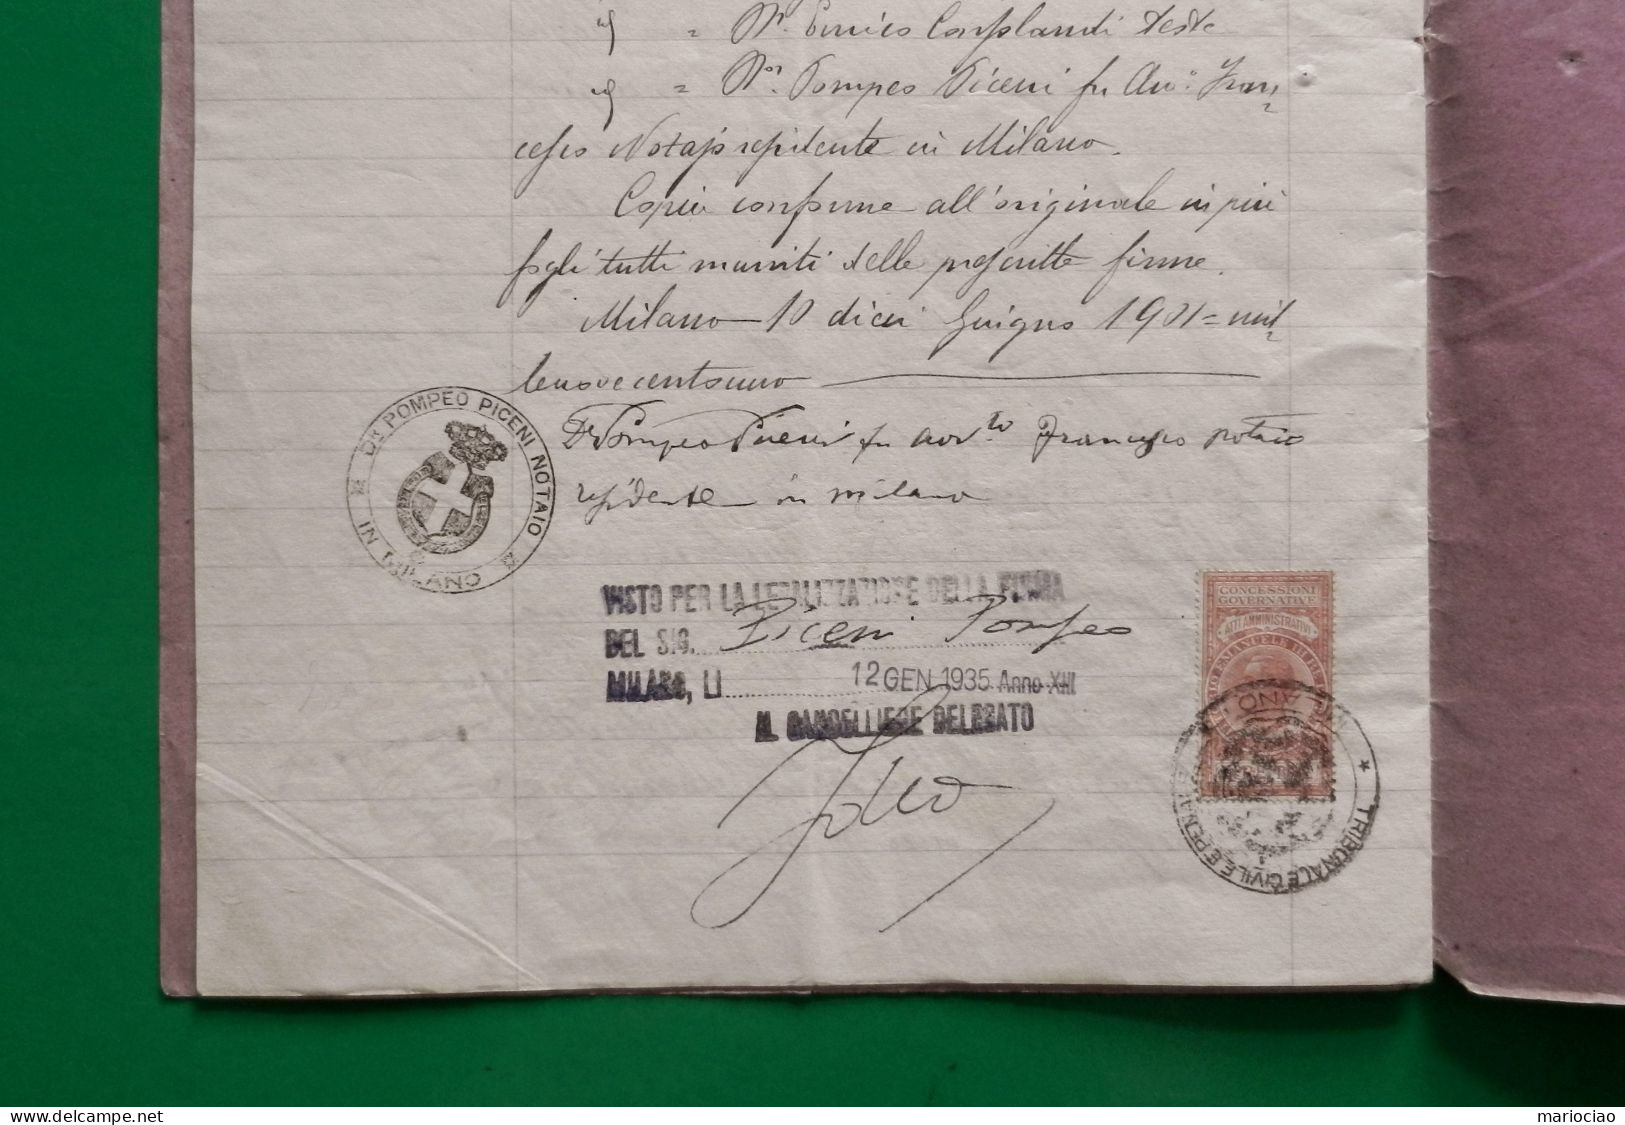 id = Dr. Enrico Conplandi teste
id = Dor. Pompeo Piceni fu Avv.o Fran=
cesco Notajo residente in Milano.
Copia conforme all'originale in più
fogli tutti muniti delle prescritte firme.
Milano 10 dieci Giugno 1901 = mil=
lenovecentouno
Dr Pompeo Piceni fu avv.to Francesco notaio
residente in milano
Dr POMPEO PICENI NOTAIO
IN MILANO
VISTO PER LA LEGALIZZAZIONE DELLA FIRMA
DEL SIG. Piceni Pompeo
MILANO, LI 12 GEN 1935 Anno XIII
IL CANCELLIERE DELEGATO
CONCESSIONI
GOVERNATIVE
ATTI AMMINISTRATIVI
TRIBUNALE CIVILE E PENALE
mariociao